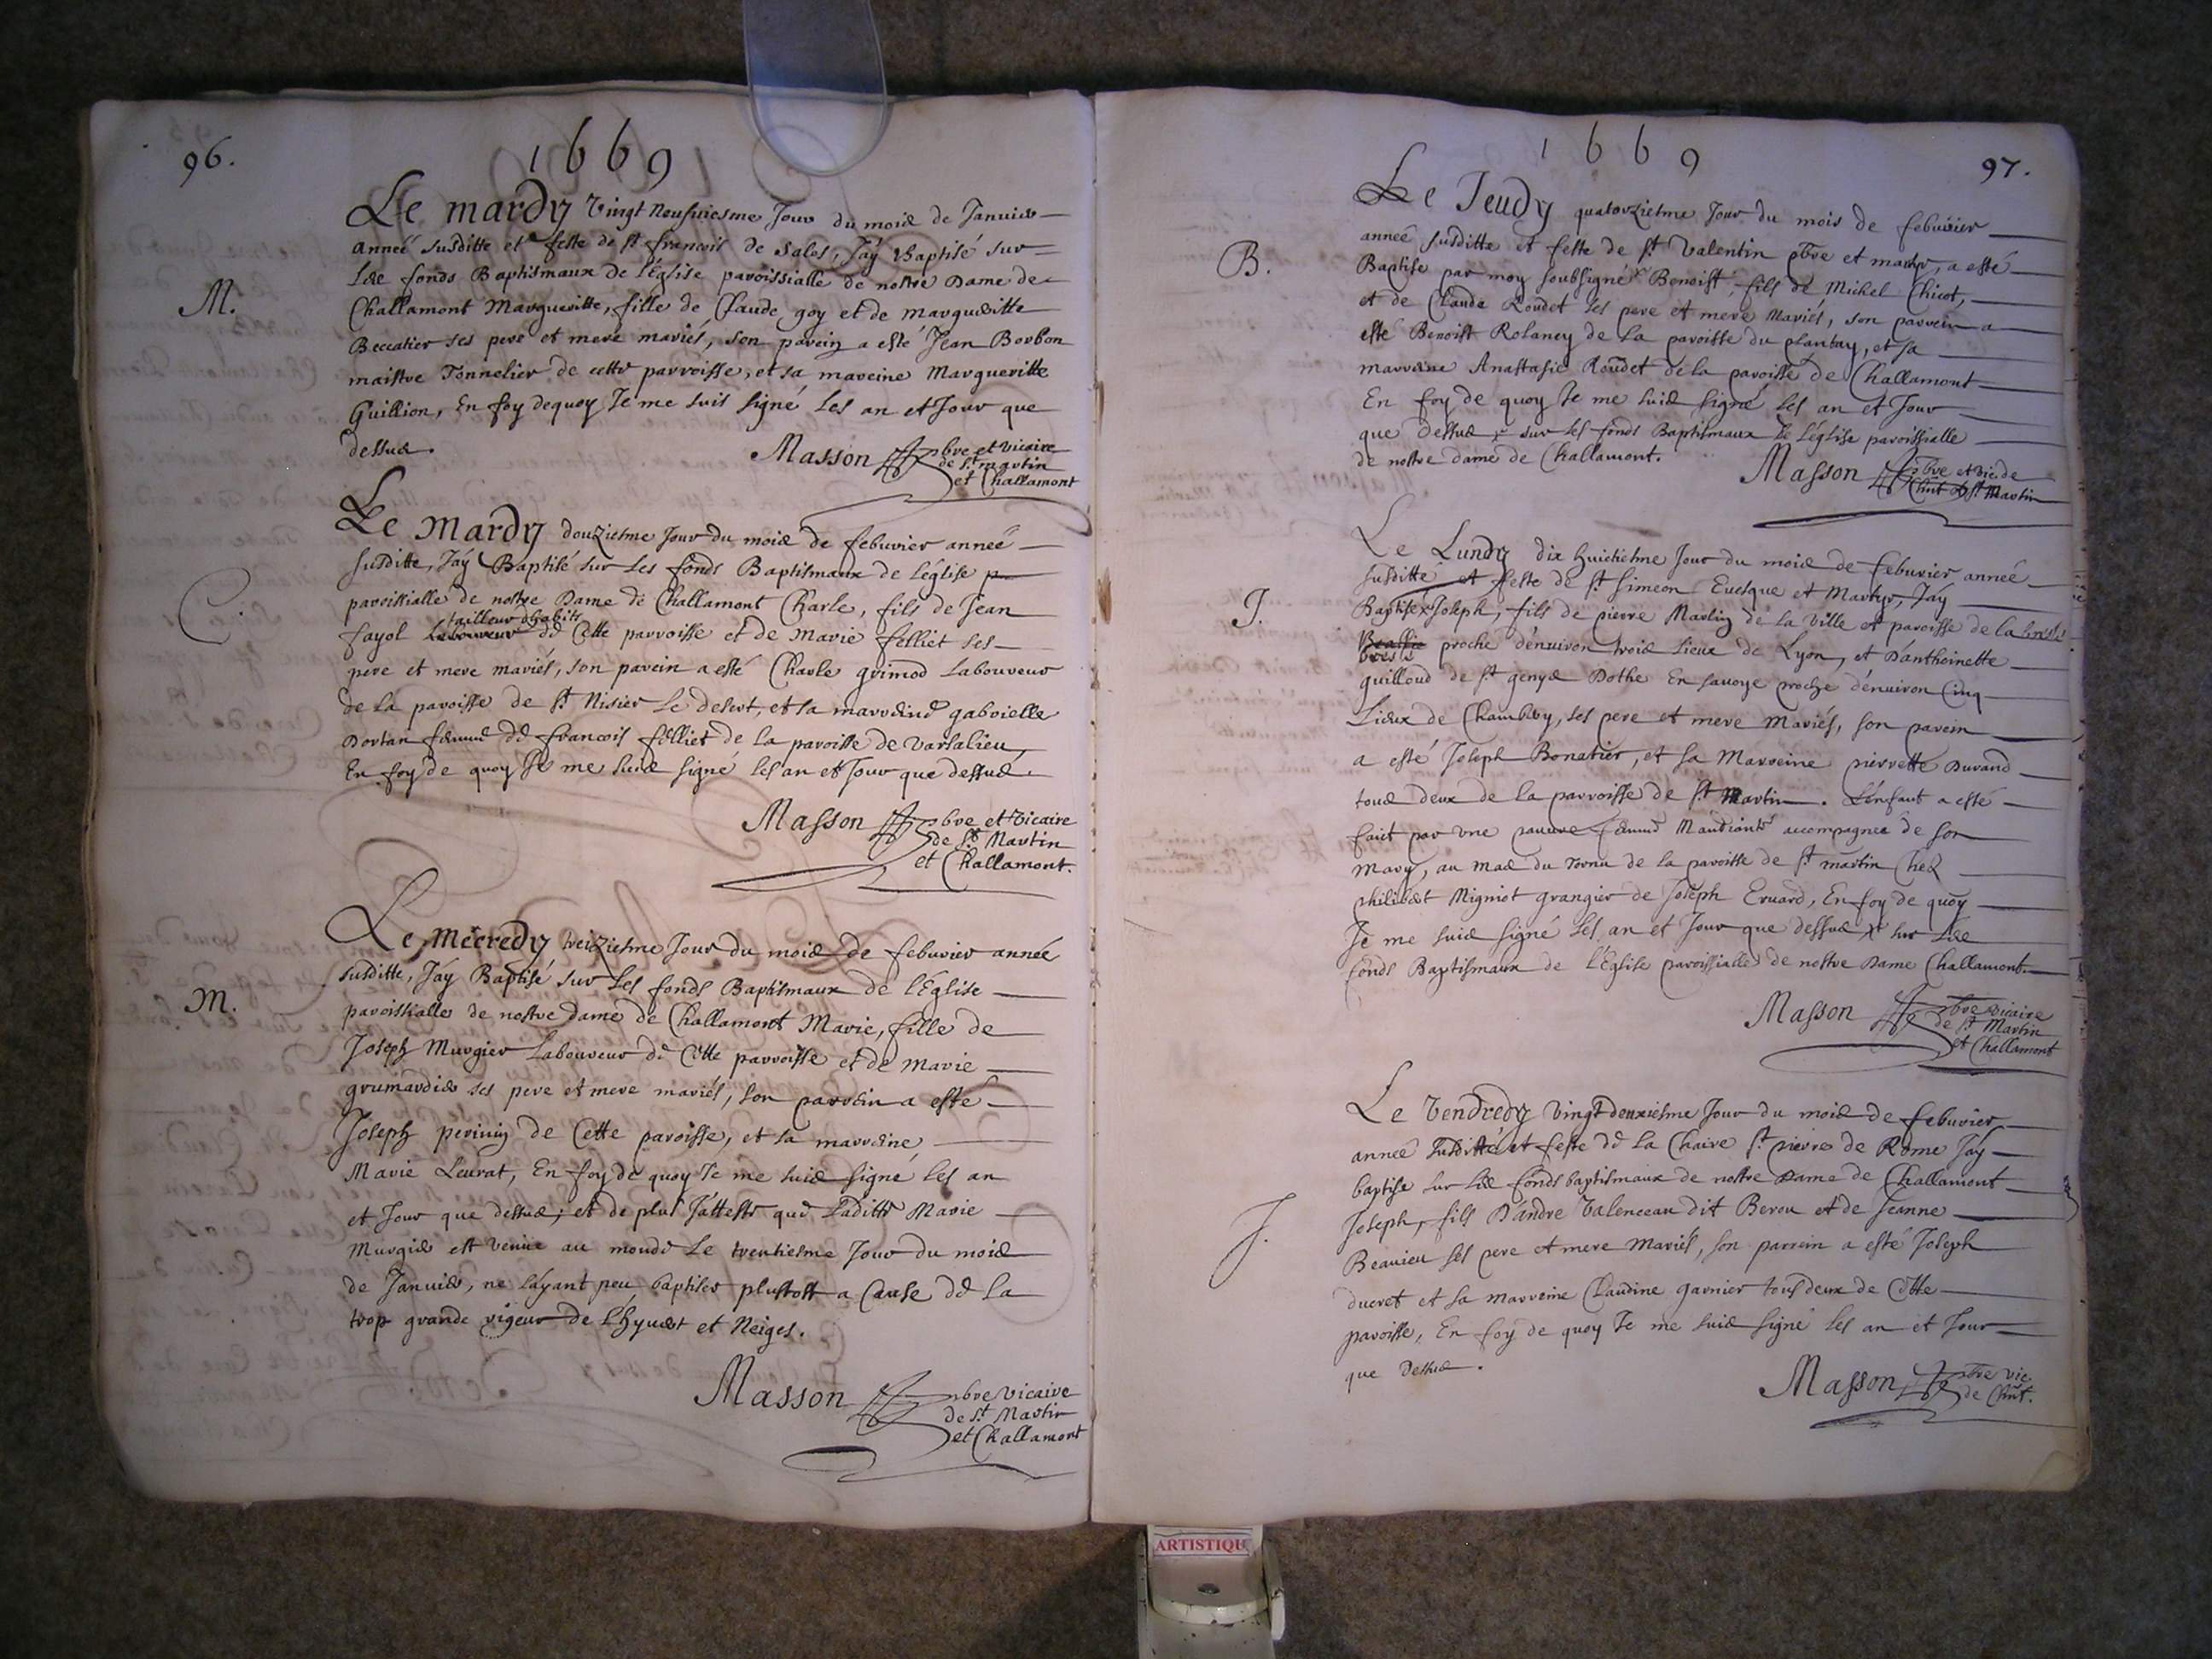 96.
1669
Le mardy vingt neufviesme Jour du mois de Janvier
M.
année susditte et feste de st francois de Sales, J'ay Baptisé sur
Les fonds Baptismaux de l'Eglise paroissialle de nostre Dame de
Challamont Margueritte, fille de Claude goy et de margueritte
Beccatier ses pere et mere mariés, son parein a esté Jean Borbon
maistre Tonnelier de cette parroisse, et sa mareine Margueritte
Guillion, En foy dequoy Je me suis signé Les an et Jour que
dessus.
Masson pbre et vicaire
de st martin
et Challamont
Le Mardy douziesme Jour du mois de febuvier année
C.
susditte, J'ay Baptisé sur Les fonds Baptismaux de l'eglise p
paroissialle de nostre Dame de Challamont Charle, fils de Jean
tailleur dhabits
fayol Laboureur de Cette parroisse et de Marie felliet ses
pere et mere mariés, son parein a esté Charle grimod Laboureur
de la paroisse de st Nisier Le desert, et sa marreine gabrielle
Dortan femme de francois felliet de la paroisse de Varsalieu,
En foy de quoy Je me suis signé Les an et Jour que dessus.
Masson pbre et Vicaire
de st Martin
et Challamont.
Le Mecredy treiziesme Jour du mois de febuvier année
M.
susditte, J'ay Baptisé sur Les fonds Baptismaux de l'Eglise
paroissialle de nostre dame de Challamont Marie, fille de
Joseph Murgier Laboureur de Cette parroisse et de Marie
grumardier ses pere et mere mariés, son parrein a esté
Joseph perinin de Cette paroisse, et sa marreine
Marie Leurat, En foy de quoy Je me suis signé Les an
et Jour que dessus; et de plus J'atteste que Laditte Marie
Murgier est venue au monde Le trentiesme Jour du mois
de Janvier, ne Layant peu baptiser plustost a Cause de La
trop grande rigeur de l'hyuert et Neiges.
Masson pbre vicaire
de st Martin
et Challamont
1669
97.
Le Jeudy quatorziesme Jour du mois de febuvier
B.
année susditte et feste de st Valentin pbre et martyr, a esté
Baptise par moy soubsigné x Benoist, fils de Michel Chicot,
et de Claude Roudet ses pere et mere Mariés, son parrein a
esté Benoist Rolaney de La paroisse du plantay, et sa
marreine Anastasie Roudet de la paroisse de Challamont
En foy de quoy Je me suis signé Les an et Jour
que dessus x sur Les fonds Baptismaux de L'église paroissialle
de nostre dame de Challamont.
Masson pbre et vic. de
Chmt et st Martin
Le Lundy dix huictiesme Jour du mois de febuvier année
J.
susditte et feste de st Simeon Euesque et Martyr, J'ay
Baptise x Joseph, fils de pierre Martin de la Ville et paroisse de la bresle
proche d'enuiron trois Lieux de Lyon, et D'anthoinette
guilloud de st genys Dothe En Savoye proche d'enuiron Cinq
Lieux de Chambry, ses pere et mere Mariés, son parein
a esté Joseph Bonatier, et sa Marreine pierrette Durand
tous deux de la parroisse de st Martin. L'enfant a esté
faict par une pauure femme Mandiante accompagnee de son
mary, au mas du de la paroisse de st martin Chez
philibert Migniot grangier de Joseph Eruard, En foy de quoy
Je me suis signé Les an et Jour que dessus x sur Les
fonds Baptismaux de l'Eglise paroissialle de nostre Dame Challamont.
Masson pbre vicaire
de st Martin
et Challamont
Le Vendredy Vingt deuxiesme Jour du mois de febuvier
année susditte et feste de La Chaire st pierre de Rome J'ay
baptise sur Les fonds baptismaux de nostre Dame de Challamont
J.
Joseph, fils D'andre Valenceau dit Berou et de Jeanne
Beauieu ses pere et mere Mariés, son parrein a esté Joseph
ducret et sa marreine Claudine garnier tous deux de Cette
paroisse, En foy de quoy Je me suis signé Les an et Jour
que dessus.
Masson pbre vic
de Chmt.
ARTISTIQU